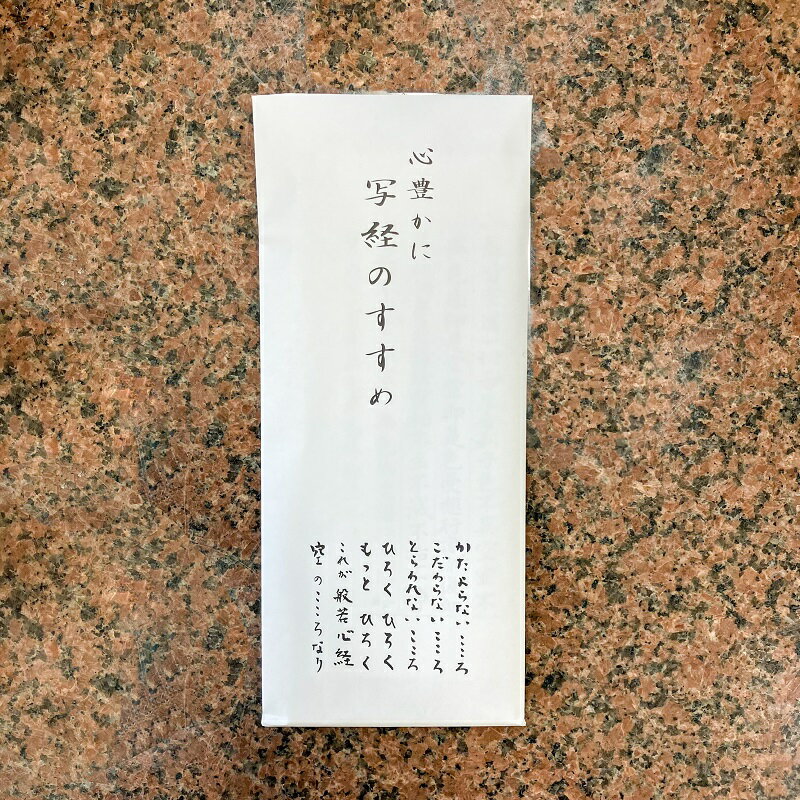 心豊かに
写経のすすめ
かたよらないこころ
こだわらないこころ
とらわれないこころ
ひろく ひろく
もっと ひろく
これが般若心経
空のこころなり